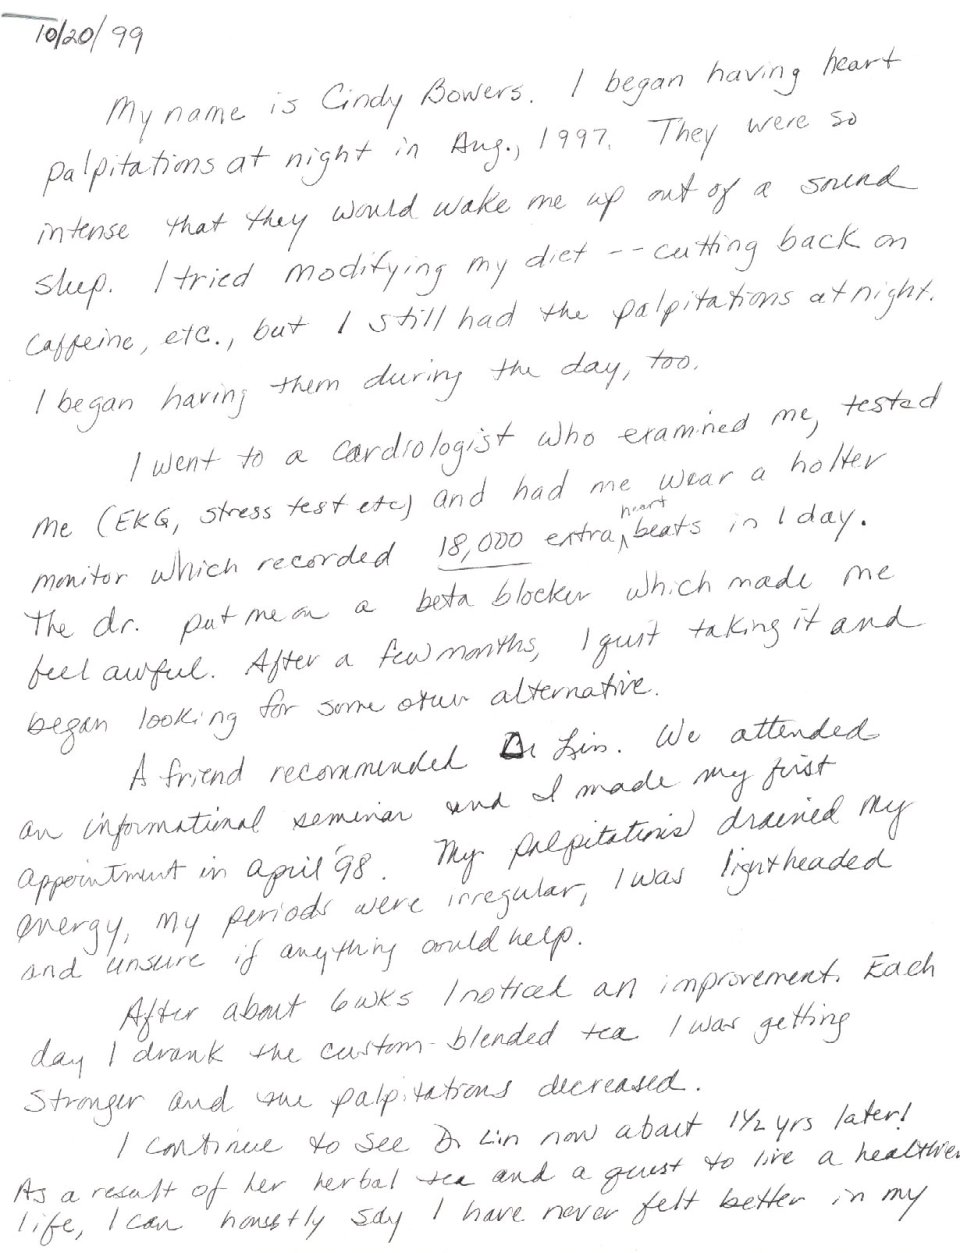 10/20/99
My name is Cindy Bowers. I began having heart
palpitations at night in Aug., 1997. They were so
intense that they would wake me up out of a sound
sleep. I tried modifying my diet -- cutting back on
caffeine, etc., but I still had the palpitations at night.
I began having them during the day, too.
I went to a cardiologist who examined me, tested
me (EKG, stress test etc) and had me wear a holter
monitor which recorded 18,000 extra heart beats in 1 day.
The dr. put me on a beta blocker which made me
feel awful. After a few months, I quit taking it and
began looking for some other alternative.
A friend recommended Dr Lin. We attended
an informational seminar and I made my first
appointment in April '98. My palpitations drained my
energy, my periods were irregular, I was lightheaded
and unsure if anything could help.
After about 6 wks I noticed an improvement. Each
day I drank the custom-blended tea I was getting
stronger and the palpitations decreased.
I continue to see Dr Lin now about 1 1/2 yrs later!
As a result of her herbal tea and a quest to live a healthier
life, I can honestly say I have never felt better in my